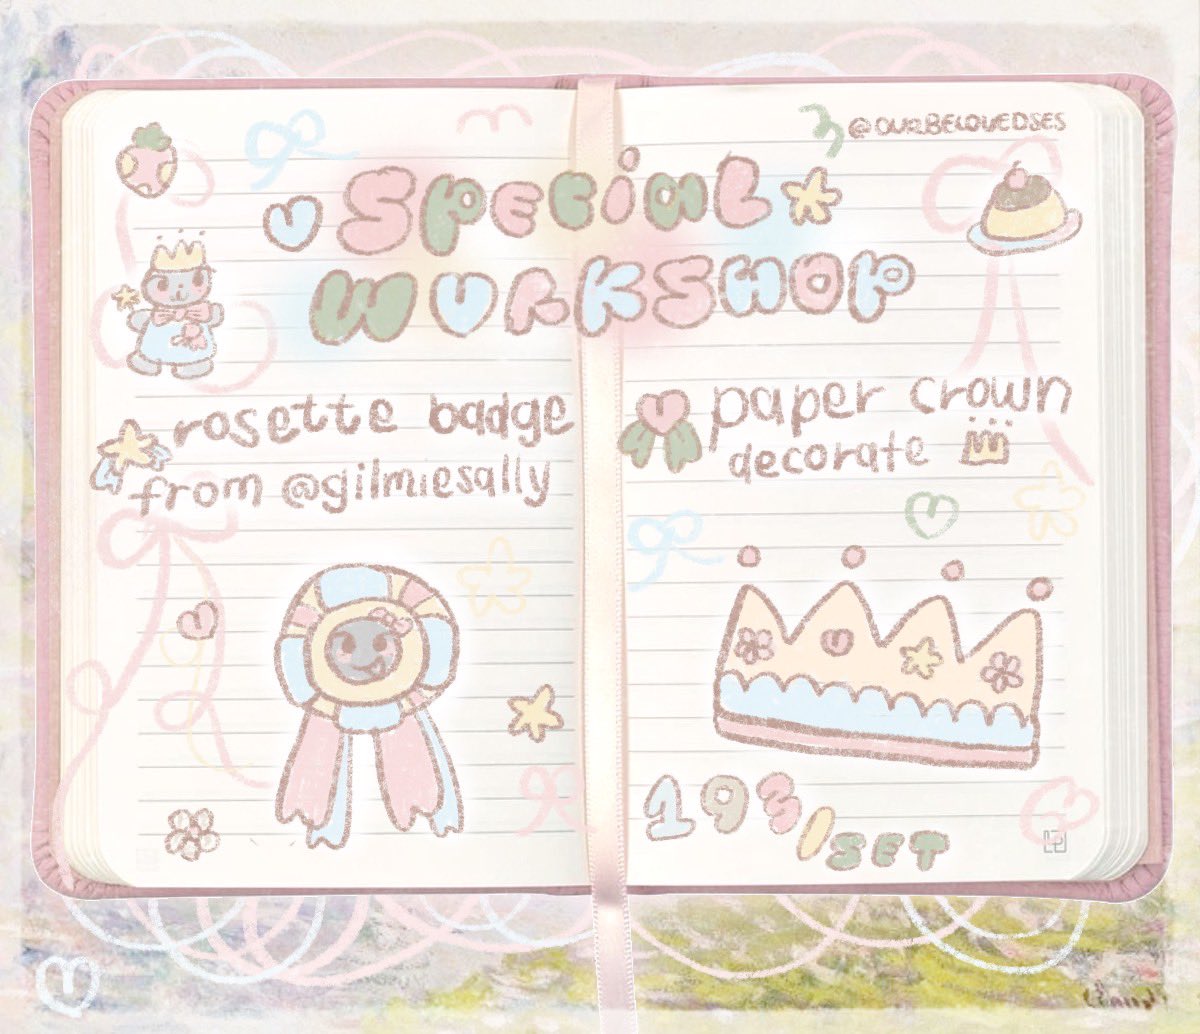 @OURBELOVEDSES
SPECiAL
WORKSHOP
rosette badge
from @gilmiesally
paper crown
decorate
193/SET